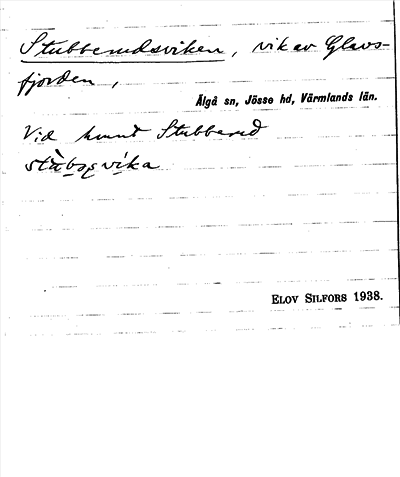 Stubberudsviken, vik av Glavs-
fjorden,
Älgå sn, Jösse hd, Värmlands län.
Vid hmnt Stubberud
ELOV SILFORS 1938.